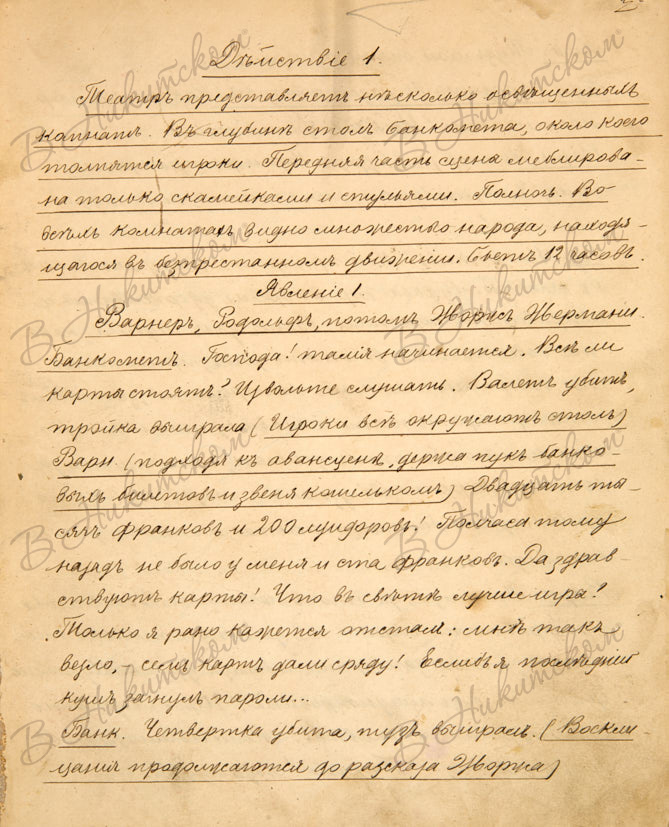 2
Дѣйствіе 1.
Театръ представляетъ нѣсколько освѣщенныхъ
комнатъ. Въ глубинѣ столъ банкомета, около коего
толпятся игроки. Передняя часть сцена меблирова-
на только скамейками и стульями. Полночь. Во
всѣхъ комнатах видно множество народа, находя-
щагося въ безпрестанномъ движеніи. Бьетъ 12 часовъ.
Явленіе 1.
Варнеръ, Родольфъ, потомъ Жоржъ Жермани.
Банкометъ. Господа! талія начинается. Всѣ ли
карты стоятъ? Извольте слушать. Валетъ убитъ,
тройка выиграла (Игроки всѣ окружаютъ столъ)
Варн. (подходя къ авансценѣ, держа пукъ банко-
выхъ билетовъ и звеня кошелькомъ) Двадцать ты-
сячъ франковъ и 200 луидоровъ! Полчаса тому
назадъ не было у меня и ста франковъ. Да здрав-
ствуютъ карты! Что въ свѣтѣ лучше игры?
Только я рано кажется отсталъ: мнѣ такъ
везло, – семь картъ дали сряду! Еслибъ я послѣдній
кушъ загнулъ пароли...
Банк. Четвертка убита, тузъ выигралъ. (Воскли-
цанія продолжаются до разсказа Жоржа)
В Никитском
В Никитском
В Никитском
В Никитском
В Никитском
В Никитском
В Никитском
В Никитском